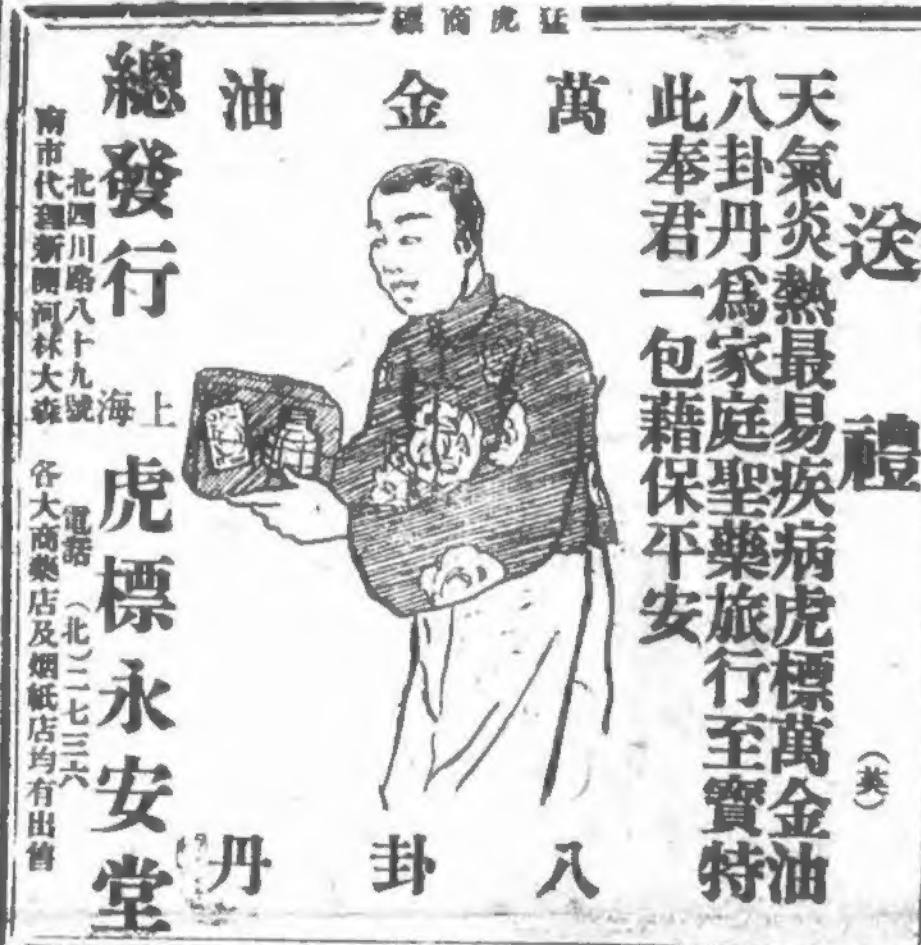 猛虎商標
送禮
(英)
天氣炎熱最易疾病虎標萬金油
八卦丹為家庭聖藥旅行至寶特
此奉君一包藉保平安
萬金油
八卦丹
總發行
上海
虎標永安堂
北四川路八十九號
電話 (北)二七三六
南市代理新開河林大森
各大商藥店及烟紙店均有出售